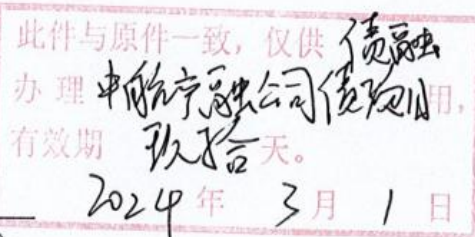 此件与原件一致，仅供 债融
办理 中航京融公司债项目 用，
有效期 玖拾 天。
2024 年 3 月 1 日